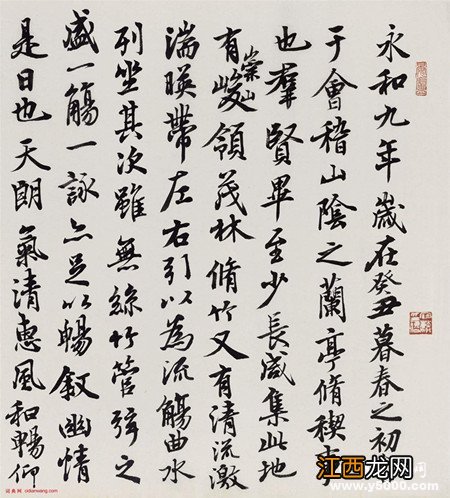 永和九年歲在癸丑暮春之初
于會稽山陰之蘭亭脩稧事
也羣賢畢至少長咸集此地
有崇山峻領茂林脩竹又有清流激
湍暎帶左右引以為流觴曲水
列坐其次雖無絲竹管弦之
盛一觴一詠亦足以暢敘幽情
是日也天朗氣清惠風和暢仰
词典网: cidianwang.com
江西龙网
www.y5000.com